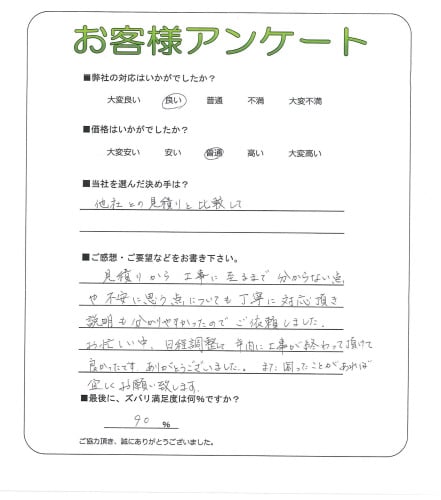 お客様アンケート
■弊社の対応はいかがでしたか?
大変良い 良い 普通 不満 大変不満
■価格はいかがでしたか?
大変安い 安い 普通 高い 大変高い
■当社を選んだ決め手は?
他社との見積りと比較して
■ご感想・ご要望などをお書き下さい。
見積りから 工事に至るまで 分からない点
や不安に思う点についても丁寧に対応頂き
説明も分かりやすかったのでご依頼しました。
お忙しい中、日程調整し 年内に工事が終わって頂けて
良かったです ありがとうございました。 また困ったことがあれば
宜しくお願い致します.
■最後に、ズバリ満足度は何%ですか?
90 %
ご協力頂き、誠にありがとうございました。